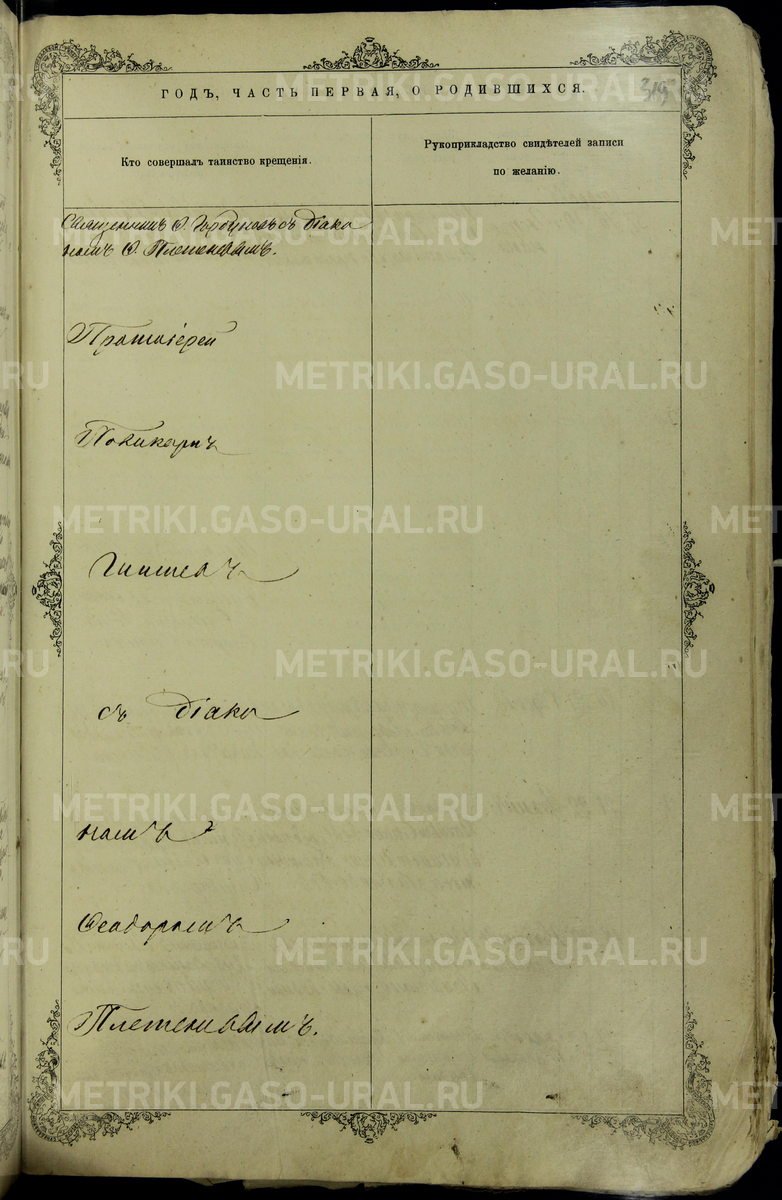 ГОДЪ, ЧАСТЬ ПЕРВАЯ, О РОДИВШИХСЯ.
Кто совершалъ таинство крещенія.
Рукоприкладство свидѣтелей записи
по желанію.
Священникъ Ѳ. съ діако
номъ Ѳ. Плетеневымъ.
Протоіерей
съ діако
номъ
Ѳеодоромъ
Плетеневымъ.
METRIKI.GASO-URAL.RU